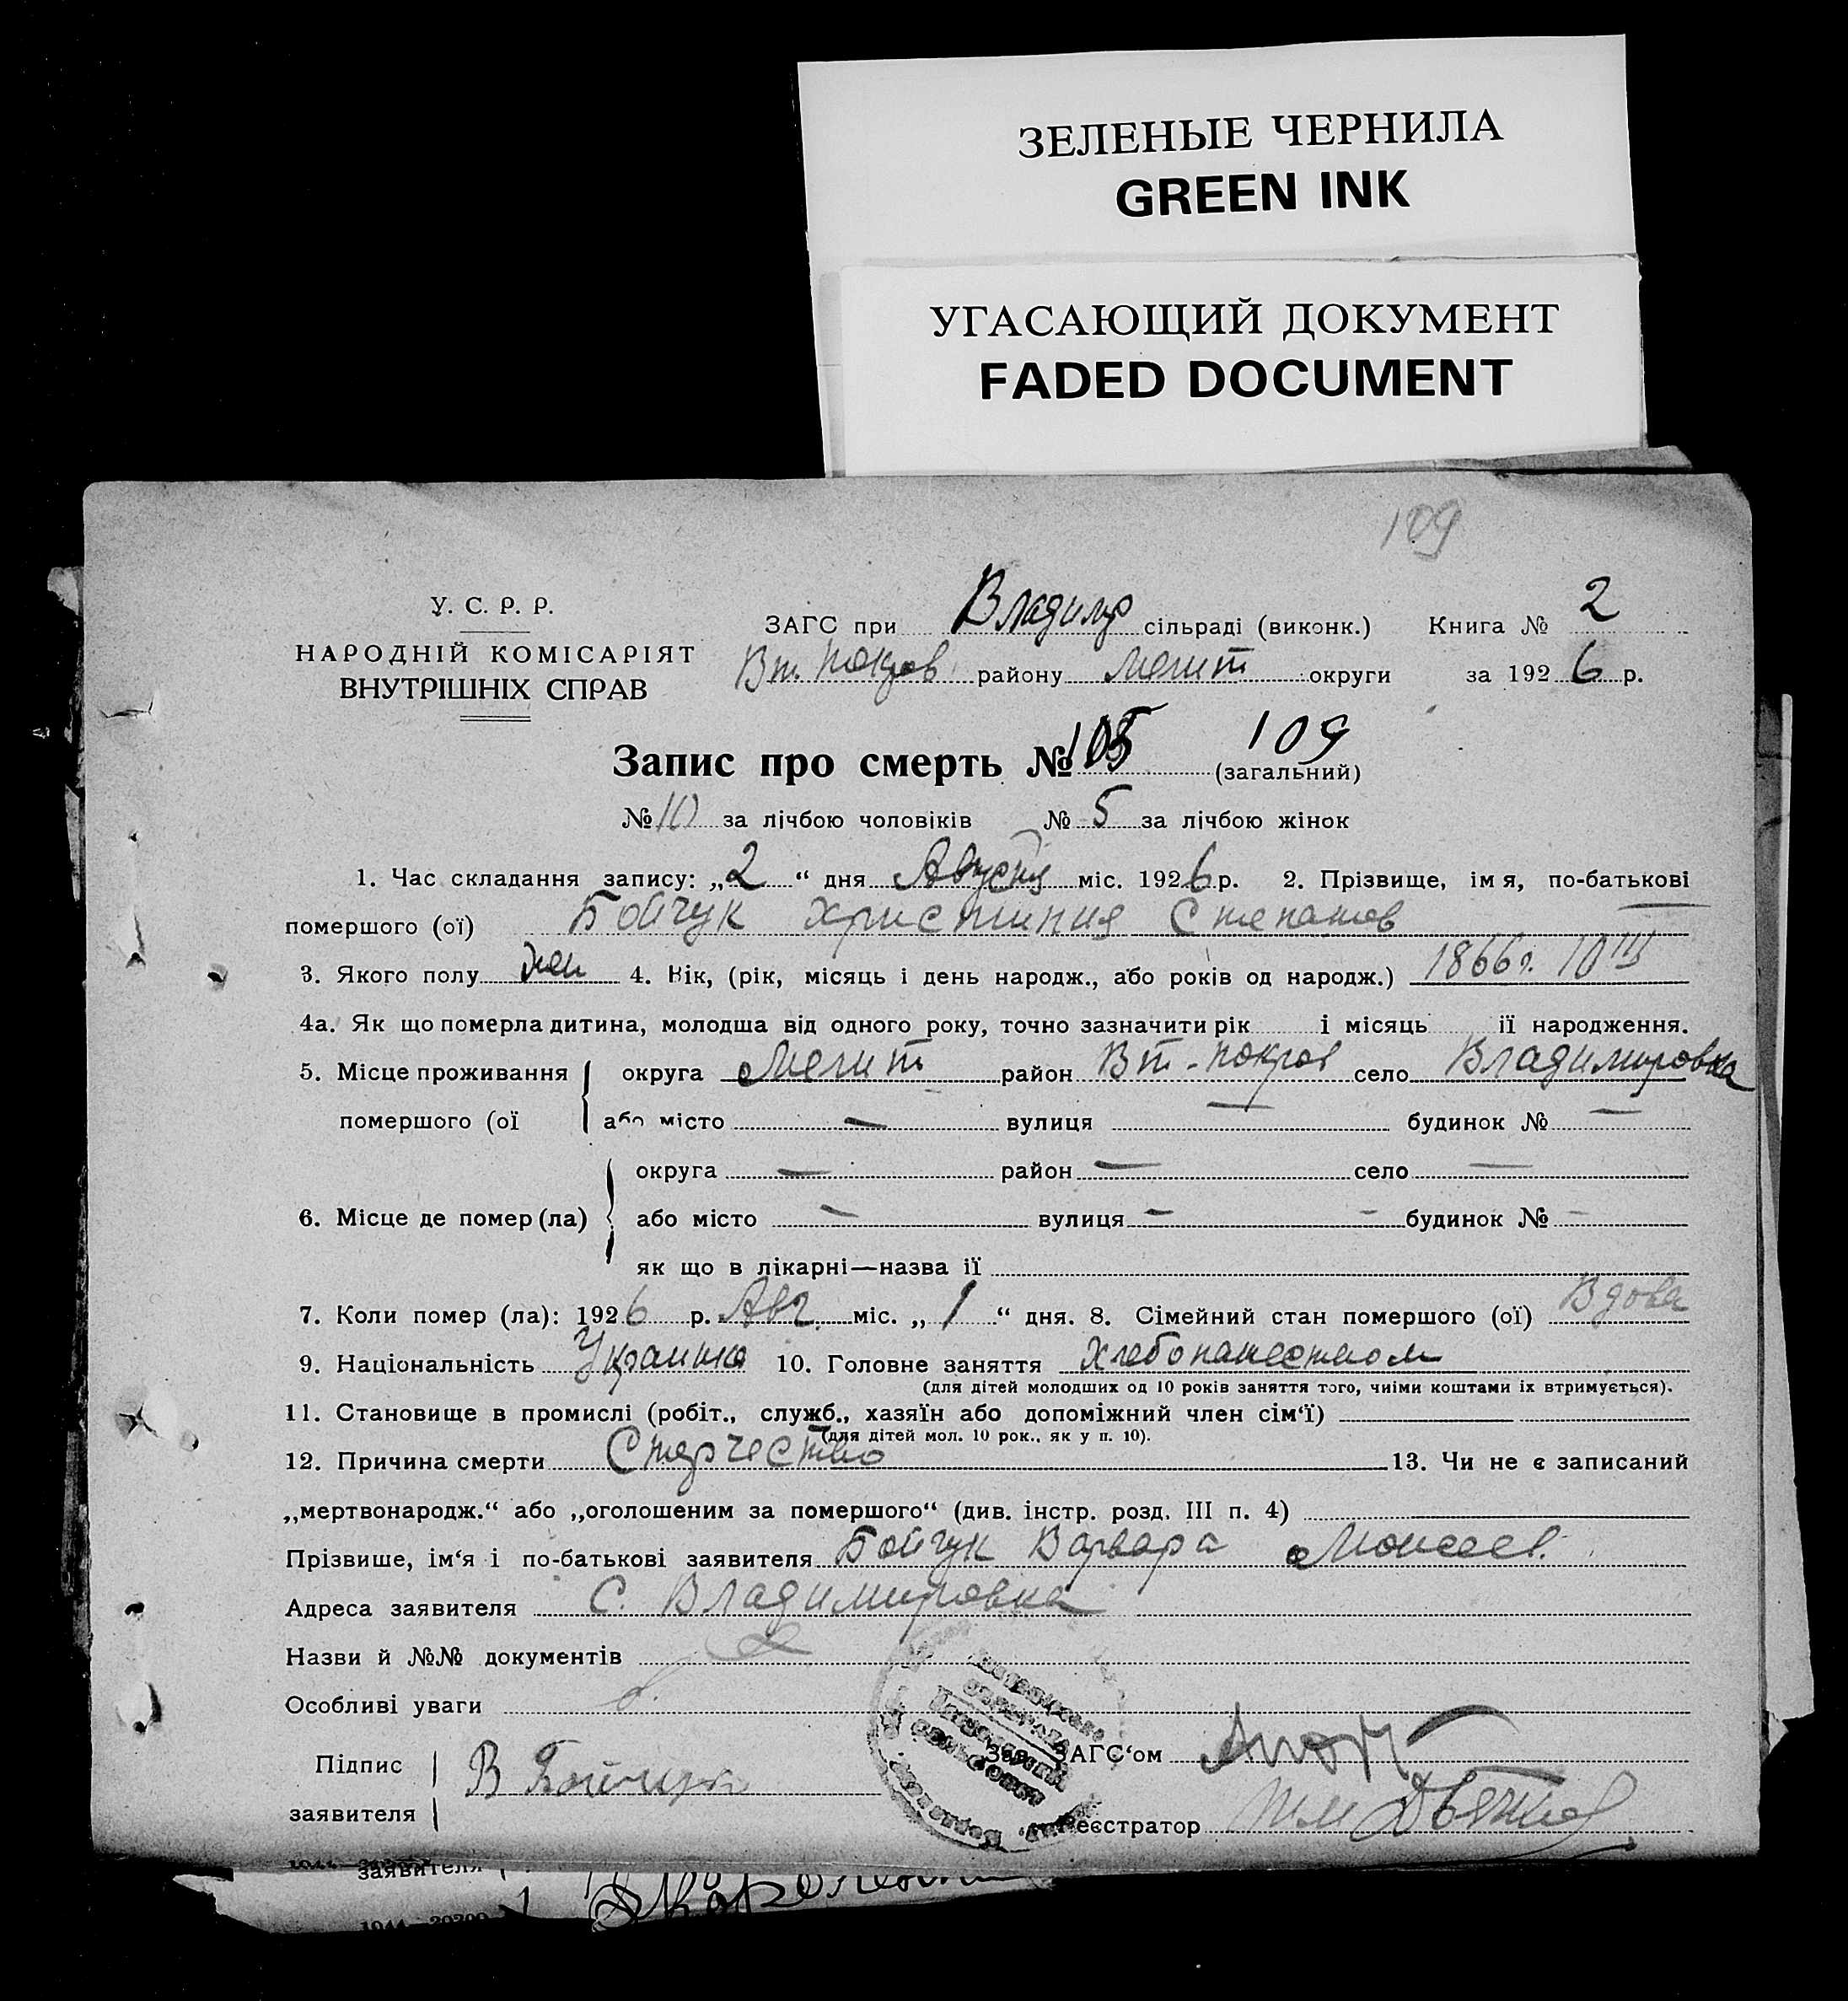 ЗЕЛЕНЫЕ ЧЕРНИЛА
GREEN INK
УГАСАЮЩИЙ ДОКУМЕНТ
FADED DOCUMENT
109
У. С. Р. Р.
НАРОДНІЙ КОМІСАРІЯТ
ВНУТРІШНІХ СПРАВ
ЗАГС при Владимр сільраді (виконк.) Книга № 2
Вт. Покров району Мелит округи за 1926 р.
Запис про смерть № 105 109
(загальний)
№ 10 за лічбою чоловіків № 5 за лічбою жінок
1. Час складання запису: „2“ дня Августа міс. 1926 р. 2. Прізвище, ім я, по-батькові
помершого (ої) Бойчук Христиния Степанов
3. Якого полу жен 4. Вік, (рік, місяць і день народж., або років од народж.) 1866 г. 10 III
4а. Як що померла дитина, молодша від одного року, точно зазначити рік і місяць її народження.
5. Місце проживання округа Мелит район Вт-Покров село Владимировка
помершого (ої або місто — вулиця — будинок № —
округа — район — село —
6. Місце де помер (ла) або місто — вулиця — — будинок № —
як що в лікарні—назва її
7. Коли помер (ла): 1926 р. Авг. міс. „1“ дня. 8. Сімейний стан помершого (ої) Вдова
9. Національність Украинка 10. Головне заняття Хлебопашеством
(для дітей молодших од 10 років заняття того, чиїми коштами їх втримується).
11. Становище в промислі (робіт., служб., хазяїн або допоміжний член сім‘ї)
(для дітей мол. 10 рок., як у п. 10).
12. Причина смерти Старчество 13. Чи не є записаний
„мертвонародж.“ або „оголошеним за помершого“ (див. інстр. розд. III п. 4)
Прізвише, ім‘я і по-батькові заявителя Бойчук Варвара Моисеев.
Адреса заявителя С. Владимировка
Назви й №№ документів
Особливі уваги
Підпис В Бойчук Зав. ЗАГС‘ом
заявителя
Реєстратор
заявителя